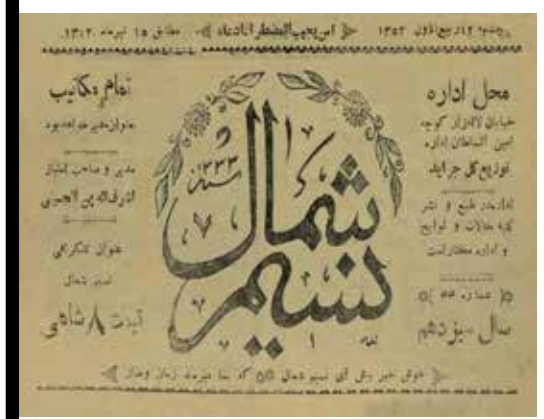 ۱۳۵۲ امن یجیب المضطر اذا دعاه مطابق ۱۵ تیرماه ۱۳۱۲
محل اداره
خیابان لاله‌زار کوچه
امین السلطان اداره
توزیع کل جراید
اداره در طبع و نشر
کلیه مقالات و لوایح
و اداره مختار است
سال سیزدهم
نسیم شمال
سنه ۱۳۳۳
تمام مکاتیب
بعنوان مدیر خواهد بود
مدیر و صاحب امتیاز
اشرف الدین الحسینی
عنوان تلگرافی
نسیم شمال
قیمت ۸ شاهی
خوش خبر باش ای نسیم شمال که بما میرسد زمان وصال